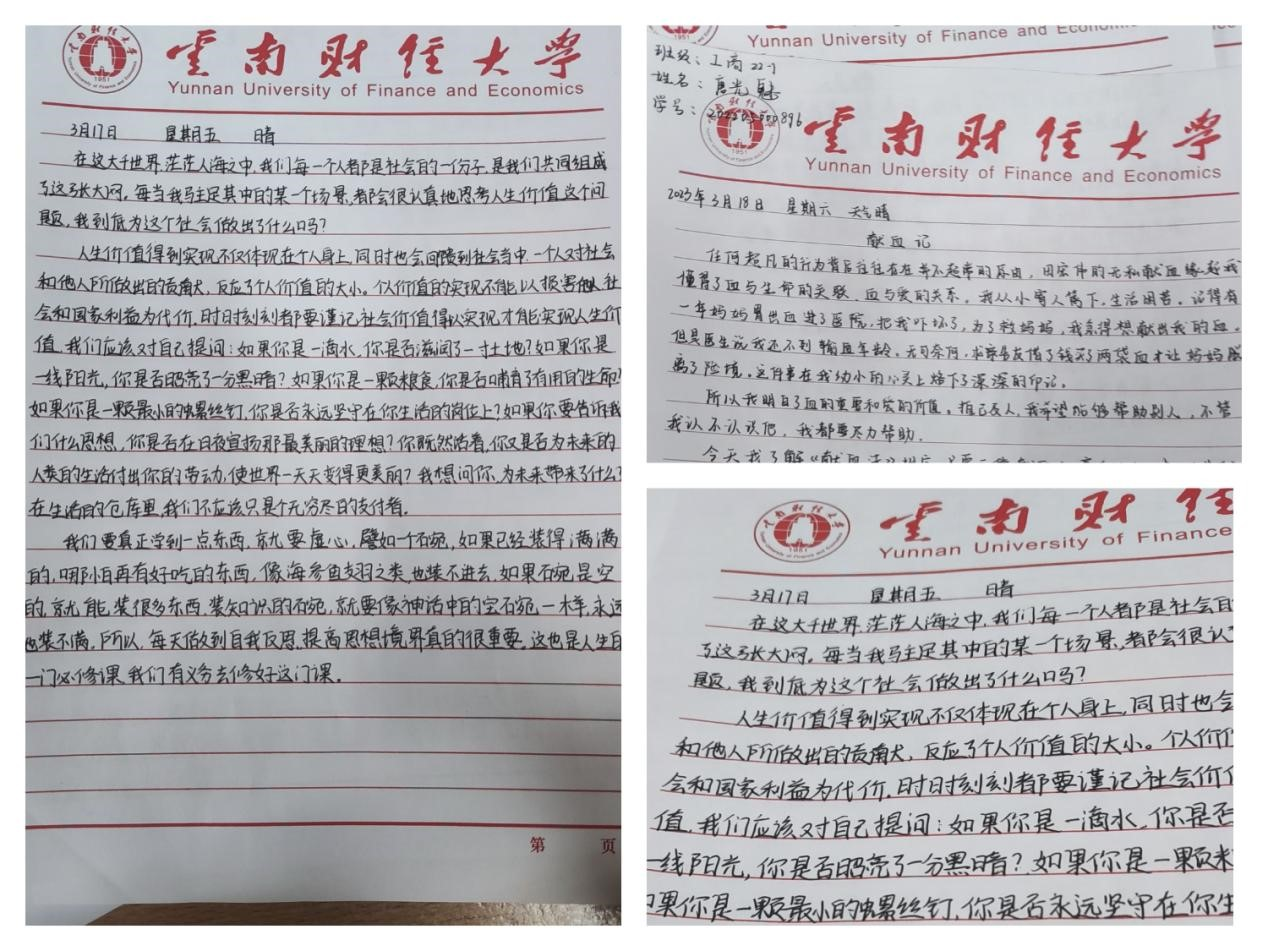 雲南财经大学
Yunnan University of Finance and Economics
1951
3月17日 星期五 晴
在这大千世界,茫茫人海之中,我们每一个人都是社会的一份子,是我们共同组成
了这张大网。每当我驻足其中的某一个场景,都会很认真地思考人生价值这个问
题,我到底为这个社会做出了什么吗?
人生价值得到实现不仅体现在个人身上,同时也会回馈到社会当中,一个人对社会
和他人所做出的贡献大,反应了个人价值的大小。个人价值的实现不能以损害他人社
会和国家利益为代价,时时刻刻都要谨记社会价值得以实现,才能实现人生价
值,我们应该对自己提问:如果你是一滴水,你是否滋润了一寸土地?如果你是
一线阳光,你是否照亮了一分黑暗?如果你是一颗粮食,你是否哺育了有用的生命?
如果你是一颗最小的螺丝钉,你是否永远坚守在你生活的岗位上?如果你要告诉我
们什么思想,你是否在日夜宣扬那最美丽的理想?你既然活着,你又是否为未来的
人类的生活付出你的劳动,使世界一天天变得更美丽?我想问你,为未来带来了什么?
在生活的仓库里,我们不应该只是个无穷尽的支付者。
我们要真正学到一点东西,就要虚心,譬如一个碗,如果已经装得满满
的,哪怕再有好吃的东西,像海参鱼翅之类,也装不进去,如果碗是空
的,就能装很多东西,装知识的碗,就要像神话中的宝碗一样,永远
也装不满。所以,每天做到自我反思,提高思想境界真的很重要。这也是人生的
一门必修课,我们有义务去修好这门课。
第 页
Yunnan University of Finance and Economics
班级:工商22-1
姓名:唐光魅
学号:202205000896
雲南财经大学
Yunnan University of Finance and Economics
2023年3月18日 星期六 天气晴
献血记
任何超凡的行为背后往往存在着不起常的原由,因宏伟的无私献血缘起我
懂得了血与生命的关联,血与爱的关系。我从小寄人篱下,生活困苦。记得有
一年妈妈胃出血进了医院,把我吓坏了,为了救妈妈,我急得想献出我的血。
但是医生说我还不到输血年龄。无可奈何,求亲告友借了钱买了两袋血才让妈妈脱
离了险境。这件事在我幼小的心灵上烙下了深深的印记。
所以我明白了血的重要和爱的价值。推己及人,我希望能够帮助别人,不管
我认不认识他,我都要尽力帮助。
今天我了解《献血法》规定
雲南财经
Yunnan University of Finance
3月17日 星期五 晴
在这大千世界,茫茫人海之中,我们每一个人都是社会的
了这张大网。每当我驻足其中的某一个场景,都会很认
题,我到底为这个社会做出了什么吗?
人生价值得到实现不仅体现在个人身上,同时也会
和他人所做出的贡献大,反应了个人价值的大小。个人价值
会和国家利益为代价,时时刻刻都要谨记社会价值
值,我们应该对自己提问:如果你是一滴水,你是否
一线阳光,你是否照亮了一分黑暗?如果你是一颗粮
如果你是一颗最小的螺丝钉,你是否永远坚守在你生